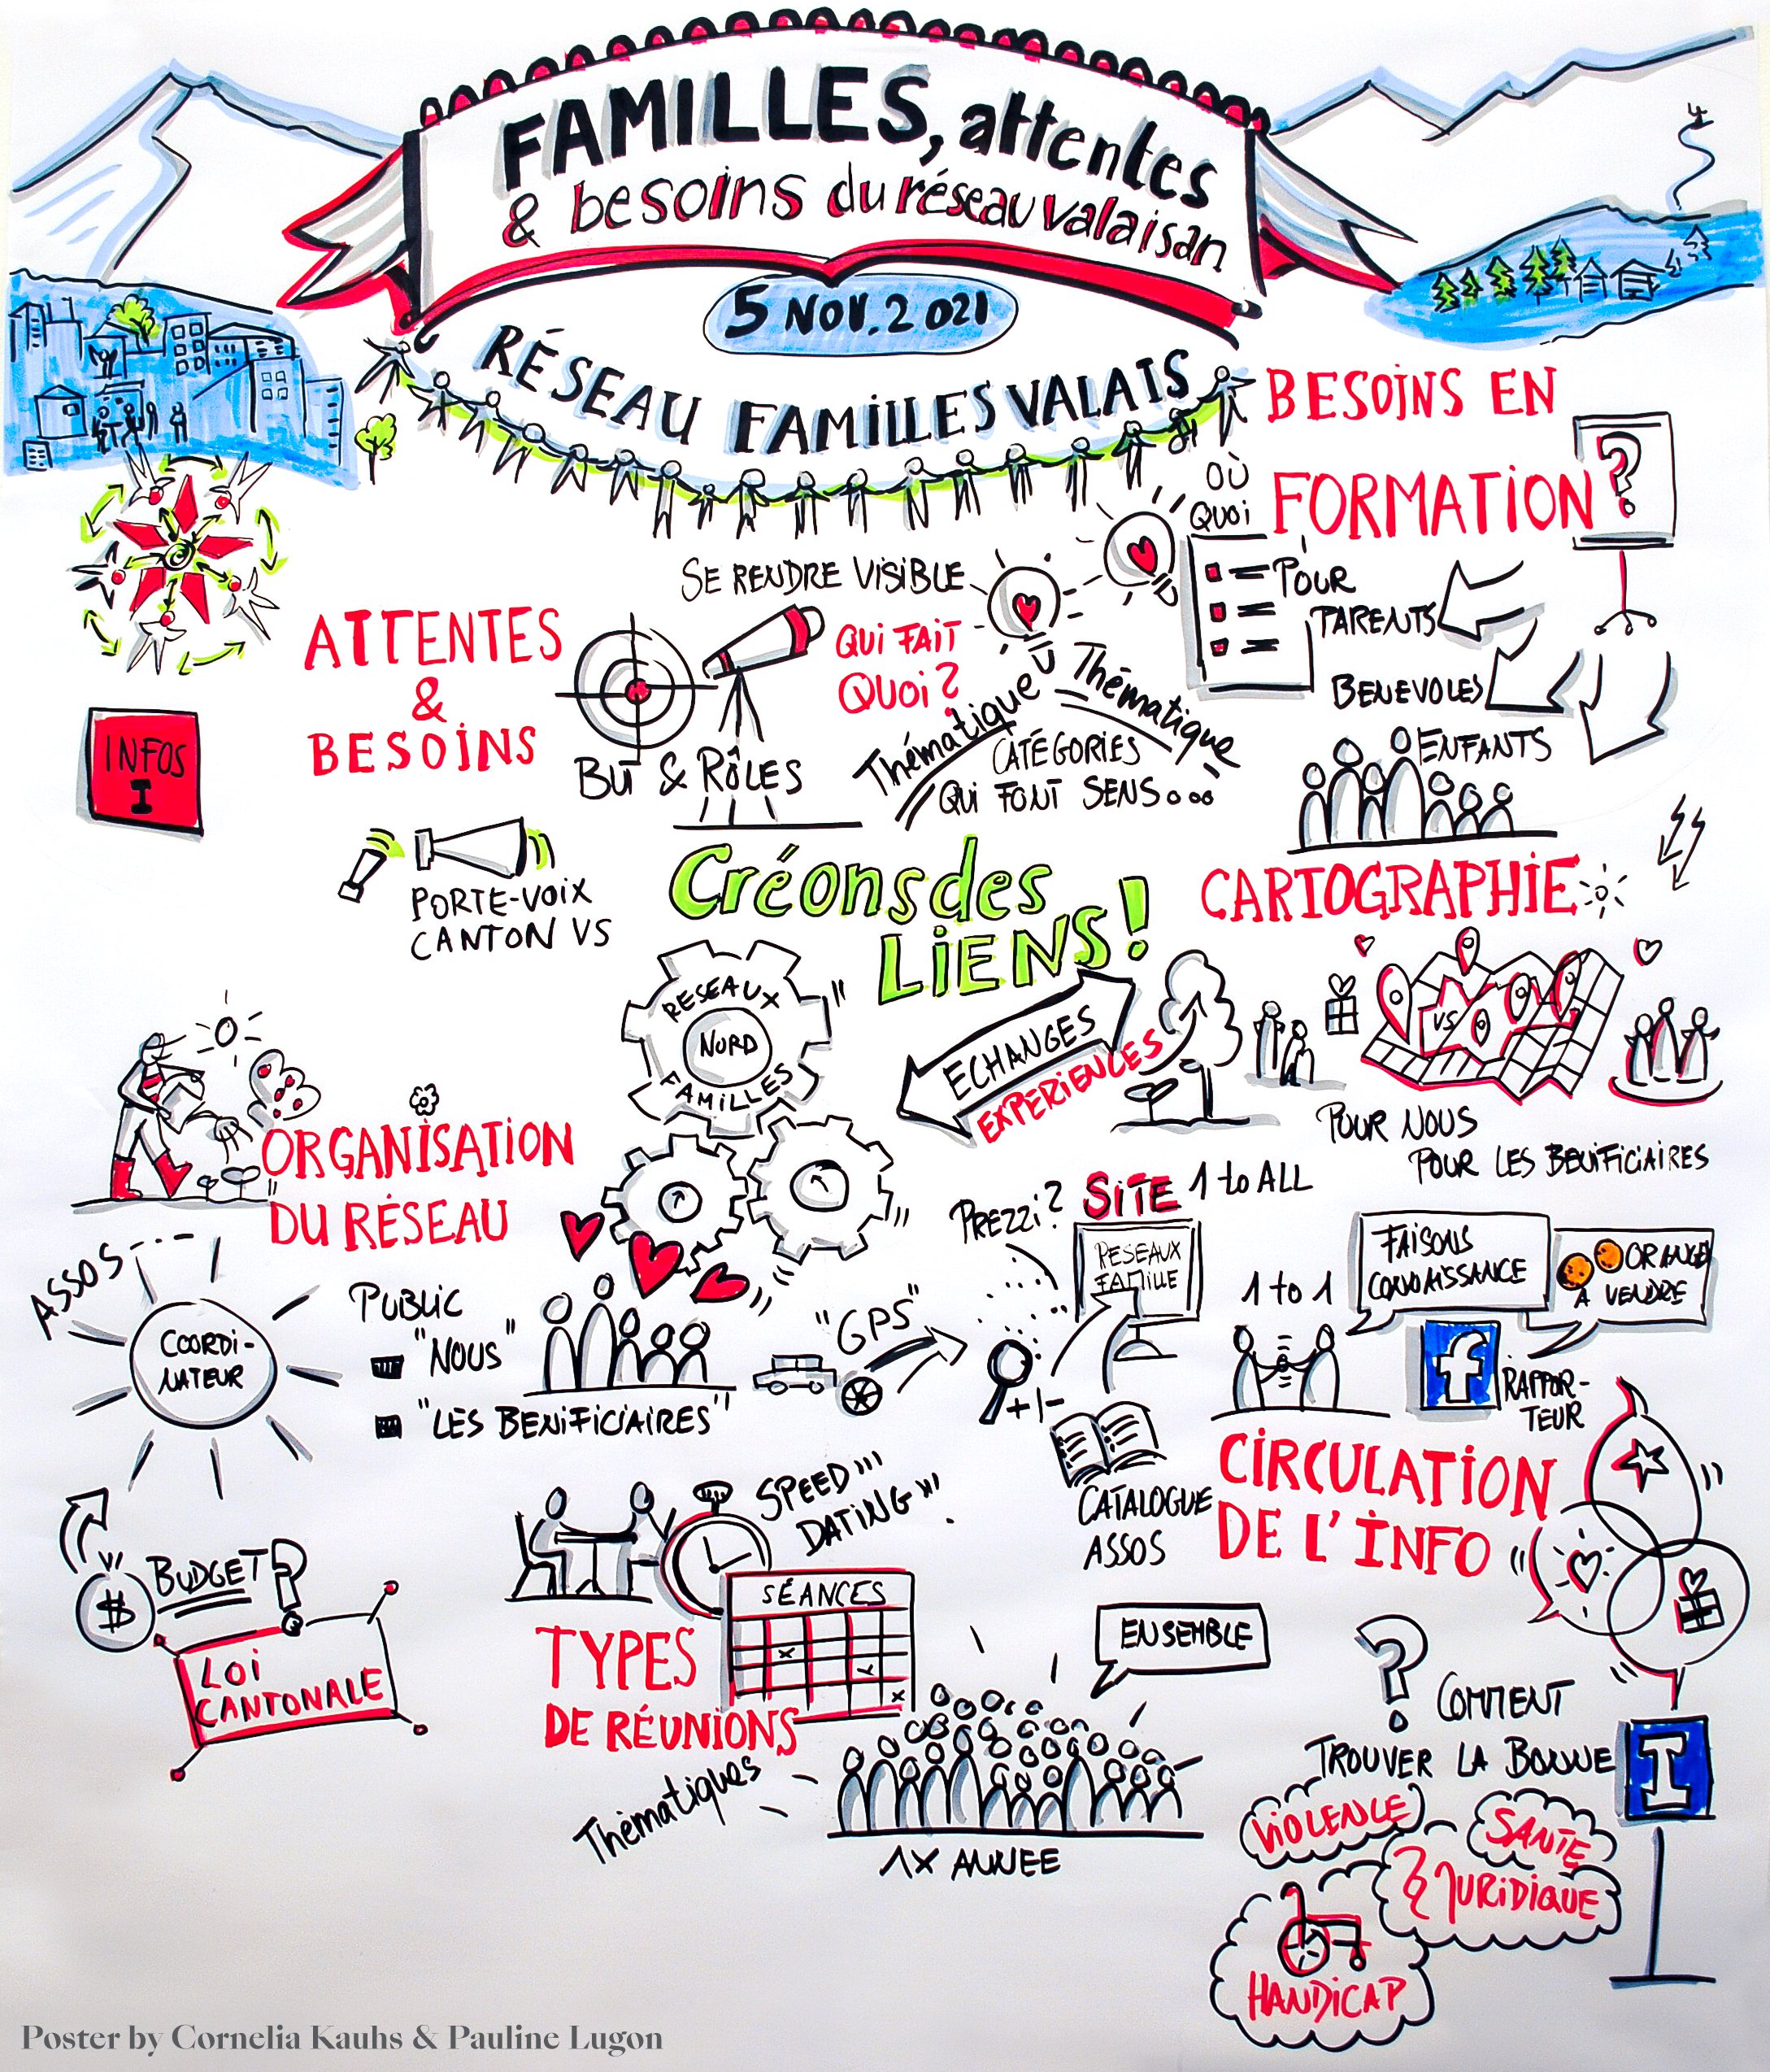 FAMILLES, attentes
& besoins du réseau valaisan
5 NOV. 2021
RÉSEAU FAMILLES VALAIS
BESOINS EN
FORMATION
?
OÙ
QUOI
POUR
PARENTS
BENEVOLES
ENFANTS
SE RENDRE VISIBLE
QUI FAIT
QUOI?
ATTENTES
&
BESOINS
BUT & RÔLES
Thématique
Thématique
CATÉGORIES
QUI FONT SENS...
INFOS
I
PORTE-VOIX
CANTON VS
Créons des
LIENS!
CARTOGRAPHIE
VS
POUR NOUS
POUR LES BENIFICIAIRES
RESEAUX
NORD
FAMILLES
ECHANGES
EXPERIENCES
ORGANISATION
DU RÉSEAU
ASSOS
COORDI-
NATEUR
PUBLIC
"NOUS"
"LES BENIFICIAIRES"
"GPS"
PREZZI?
SITE 1 to ALL
RESEAUX
FAMILLE
+/-
CATALOGUE
ASSOS
1 to 1
FAISONS
CONNAISSANCE
ORANGE
A VENDRE
f
RAPPOR-
TEUR
CIRCULATION
DE L'INFO
BUDGET?
$
LOI
CANTONALE
SPEED
DATING
SÉANCES
TYPES
DE RÉUNIONS
Thématiques
ENSEMBLE
1X ANNEE
?
COMMENT
TROUVER LA BONNE
I
VIOLENCE
SANTE
§ JURIDIQUE
HANDICAP
Poster by Cornelia Kauhs & Pauline Lugon